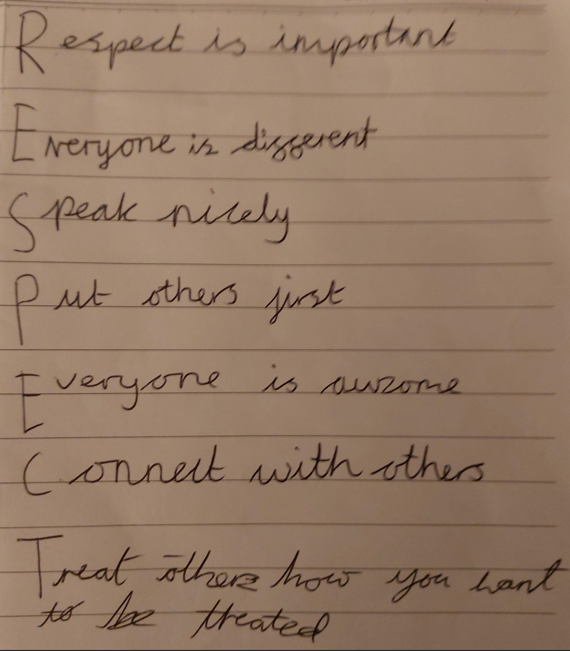 Respect is important
Everyone is different
Speak nicely
Put others first
Everyone is awzome
Connect with others
Treat others how you want
to be theated